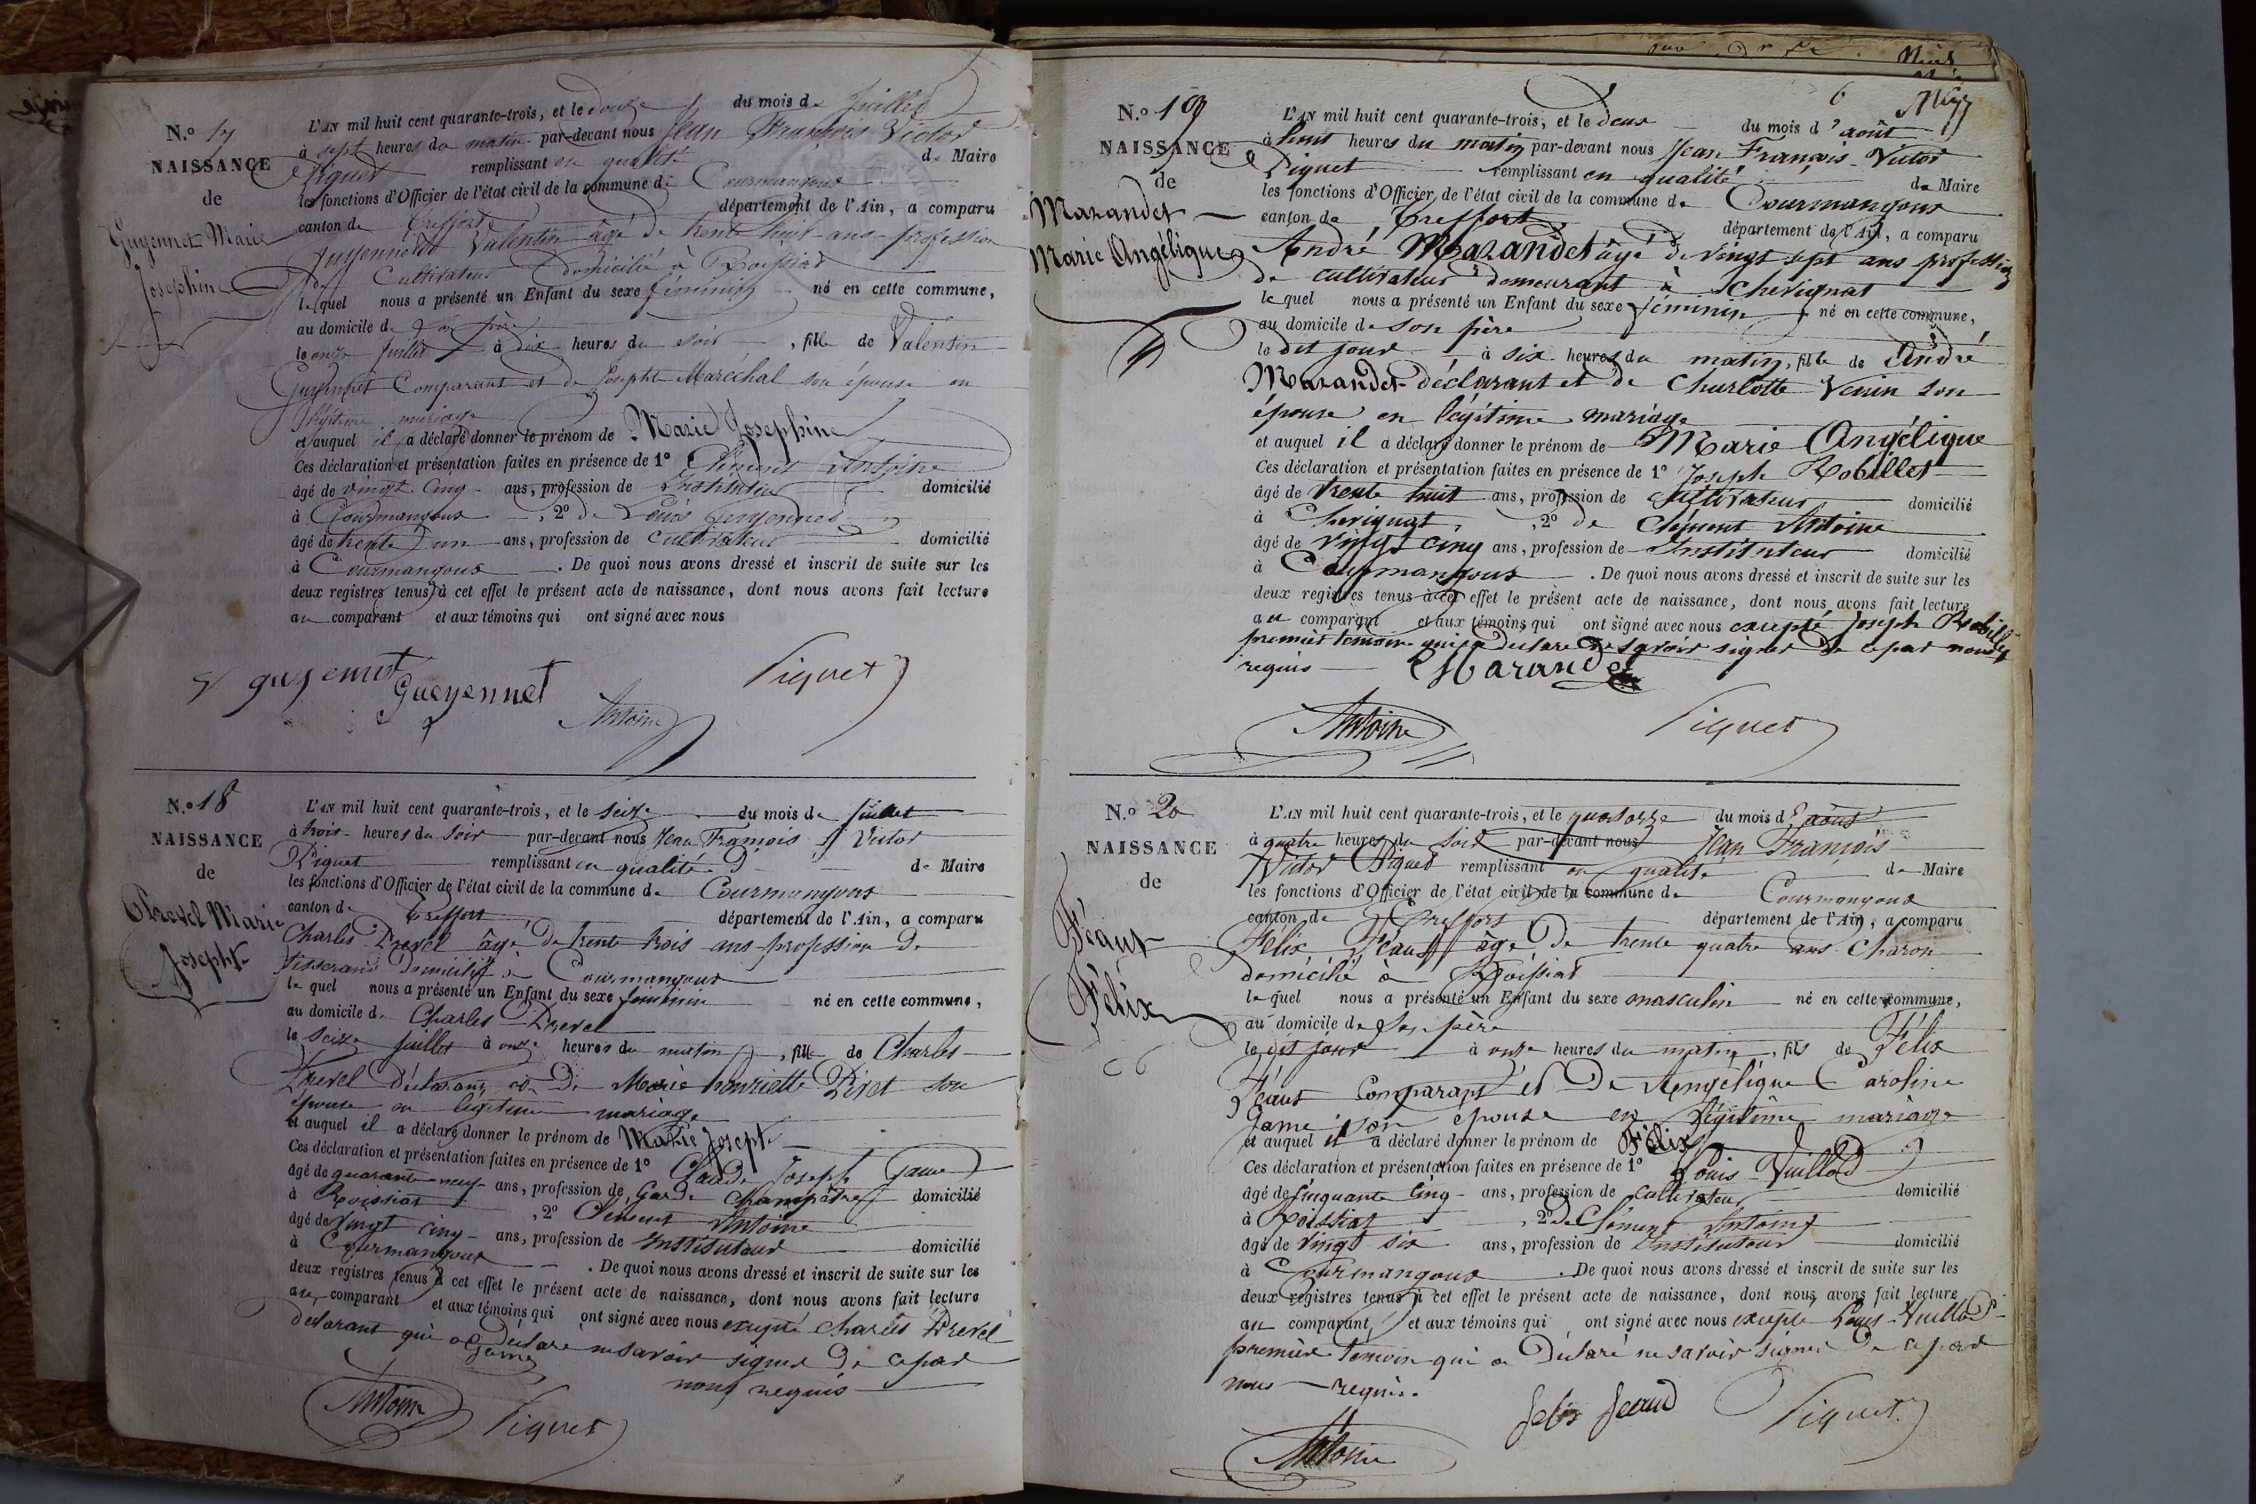 N.º 17
NAISSANCE
de
Guyennet Marie
Josephine
L'AN mil huit cent quarante-trois, et le douze du mois de Juillet
à sept heures du matin par-devant nous Jean François Victor
Piquet remplissant en qualité de Maire
les fonctions d'Officier de l'état civil de la commune de Courmangoux
canton de Treffort département de l'Ain, a comparu
Guyennet Valentin âgé de trente huit ans profession
de Cultivateur domicilié à Roissiat
lequel nous a présenté un Enfant du sexe féminin né en cette commune,
au domicile de son père
le onze Juillet à dix heures du soir, fille de Valentin
Guyennet Comparant et de Josephte Maréchal son épouse en
légitime mariage
et auquel il a déclaré donner le prénom de Marie Josephine
Ces déclaration et présentation faites en présence de 1º Clément Antoine
âgé de vingt cinq ans, profession de Instituteur domicilié
à Courmangoux, 2º de Louis Guyennet
âgé de trente un ans, profession de cultivateur domicilié
à Courmangoux. De quoi nous avons dressé et inscrit de suite sur les
deux registres tenus à cet effet le présent acte de naissance, dont nous avons fait lecture
au comparant et aux témoins qui ont signé avec nous
guyennet Gueyennet Antoine Piquet
N.º 18
NAISSANCE
de
Drevel Marie
Josepht
L'AN mil huit cent quarante-trois, et le seize du mois de juillet
à trois heures du soir par-devant nous Jean François Victor
Piquet remplissant en qualité de Maire
les fonctions d'Officier de l'état civil de la commune de Courmangoux
canton de Treffort département de l'Ain, a comparu
Charles Drevel âgé de trente trois ans profession de
tisserand domicilié à Courmangoux
lequel nous a présenté un Enfant du sexe feminin né en cette commune,
au domicile de Charles Drevel
le seize juillet à onze heures du matin, fille de Charles
Drevel déclarant et de Marie henriette Piret son
épouse en légitime mariage
et auquel il a déclaré donner le prénom de Marie Josepht
Ces déclaration et présentation faites en présence de 1º Claude Joseph Game
âgé de quarante neuf ans, profession de Garde Champêtre domicilié
à Roissiat, 2º Clément Antoine
âgé de vingt cinq ans, profession de Instituteur domicilié
à Courmangoux. De quoi nous avons dressé et inscrit de suite sur les
deux registres tenus à cet effet le présent acte de naissance, dont nous avons fait lecture
au comparant et aux témoins qui ont signé avec nous excepté Charles Drevel
déclarant qui a déclaré ne savoir signer de ce par
nous requis
Game
Antoine Piquet
6
N.º 19
NAISSANCE
de
Marandet
Marie Angélique
L'AN mil huit cent quarante-trois, et le deux du mois d'août
à huit heures du matin par-devant nous Jean François Victor
Piquet remplissant en qualité de Maire
les fonctions d'Officier de l'état civil de la commune de Courmangoux
canton de Treffort département de l'Ain, a comparu
André Marandet âgé de vingt sept ans profession
de cultivateur demeurant à Chevignat
lequel nous a présenté un Enfant du sexe féminin né en cette commune,
au domicile de son père
le dit jour à six heures du matin, fille de André
Marandet déclarant et de Charlotte Venin son
épouse en légitime mariage
et auquel il a déclaré donner le prénom de Marie Angélique
Ces déclaration et présentation faites en présence de 1º Joseph Robillet
âgé de trente huit ans, profession de cultivateur domicilié
à Chevignat, 2º de Clément Antoine
âgé de vingt cinq ans, profession de Instituteur domicilié
à Courmangoux. De quoi nous avons dressé et inscrit de suite sur les
deux registres tenus à cet effet le présent acte de naissance, dont nous avons fait lecture
au comparant et aux témoins qui ont signé avec nous excepté Joseph Robillet
premier temoin qui a déclaré ne savoir signer de ce par nous
requis
Marandet
Antoine Piquet
N.º 20
NAISSANCE
de
Féaut
Félix
L'AN mil huit cent quarante-trois, et le quatorze du mois d'août
à quatre heures du soir par-devant nous Jean François
Victor Piquet remplissant en qualité de Maire
les fonctions d'Officier de l'état civil de la commune de Courmangoux
canton de Treffort département de l'Ain, a comparu
Félix Féaut âgé de trente quatre ans Charon
domicilié à Roissiat
lequel nous a présenté un Enfant du sexe masculin né en cette commune,
au domicile de son père
le dit jour à onze heures du matin, fils de Félix
Féaut Comparant et de Angélique Caroline
Game son épouse en légitime mariage
et auquel il a déclaré donner le prénom de Félix
Ces déclaration et présentation faites en présence de 1º Louis Vuillod
âgé de cinquante cinq ans, profession de cultivateur domicilié
à Roissiat, 2º de Clément Antoine
âgé de vingt six ans, profession de Instituteur domicilié
à Courmangoux. De quoi nous avons dressé et inscrit de suite sur les
deux registres tenus à cet effet le présent acte de naissance, dont nous avons fait lecture
au comparant, et aux témoins qui ont signé avec nous excepté Louis Vuillod
premier temoin qui a déclaré ne savoir signer de ce par
nous requis.
felix feaud Piquet
Antoine